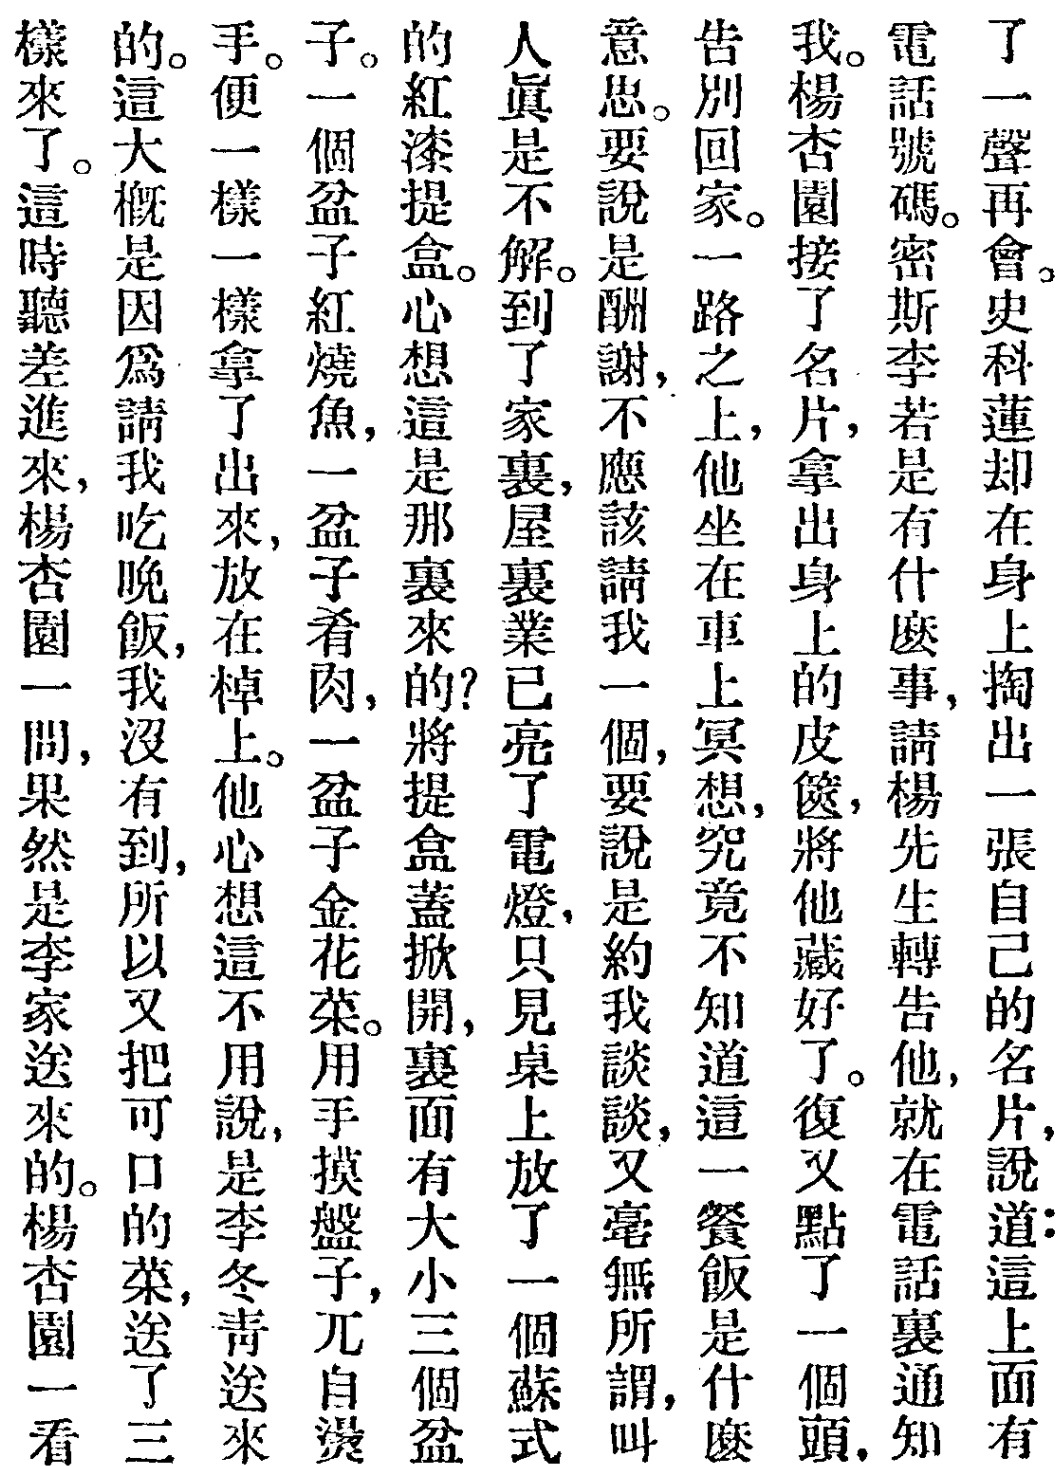 了一聲再會。史科蓮却在身上掏出一張自己的名片，說道：這上面有
電話號碼。密斯李若是有什麽事，請楊先生轉告他，就在電話裏通知
我。楊杏園接了名片，拿出身上的皮篋，將他藏好了。復又點了一個頭，
告別回家。一路之上，他坐在車上冥想，究竟不知道這一餐飯是什麽
意思。要說是酬謝，不應該請我一個，要說是約我談談，又毫無所謂，叫
人眞是不解。到了家裏，屋裏業已亮了電燈，只見桌上放了一個蘇式
的紅漆提盒。心想這是那裏來的？將提盒蓋掀開，裏面有大小三個盆
子。一個盆子紅燒魚，一盆子肴肉，一盆子金花菜。用手摸盤子，兀自燙
手。便一樣一樣拿了出來，放在棹上。他心想這不用說，是李冬靑送來
的。這大概是因爲請我吃晚飯，我沒有到，所以又把可口的菜，送了三
樣來了。這時聽差進來，楊杏園一問，果然是李家送來的。楊杏園一看